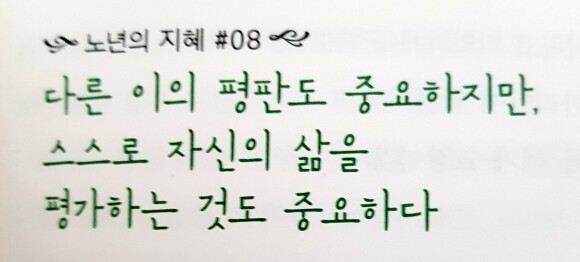 노년의 지혜 #08
다른 이의 평판도 중요하지만,
스스로 자신의 삶을
평가하는 것도 중요하다